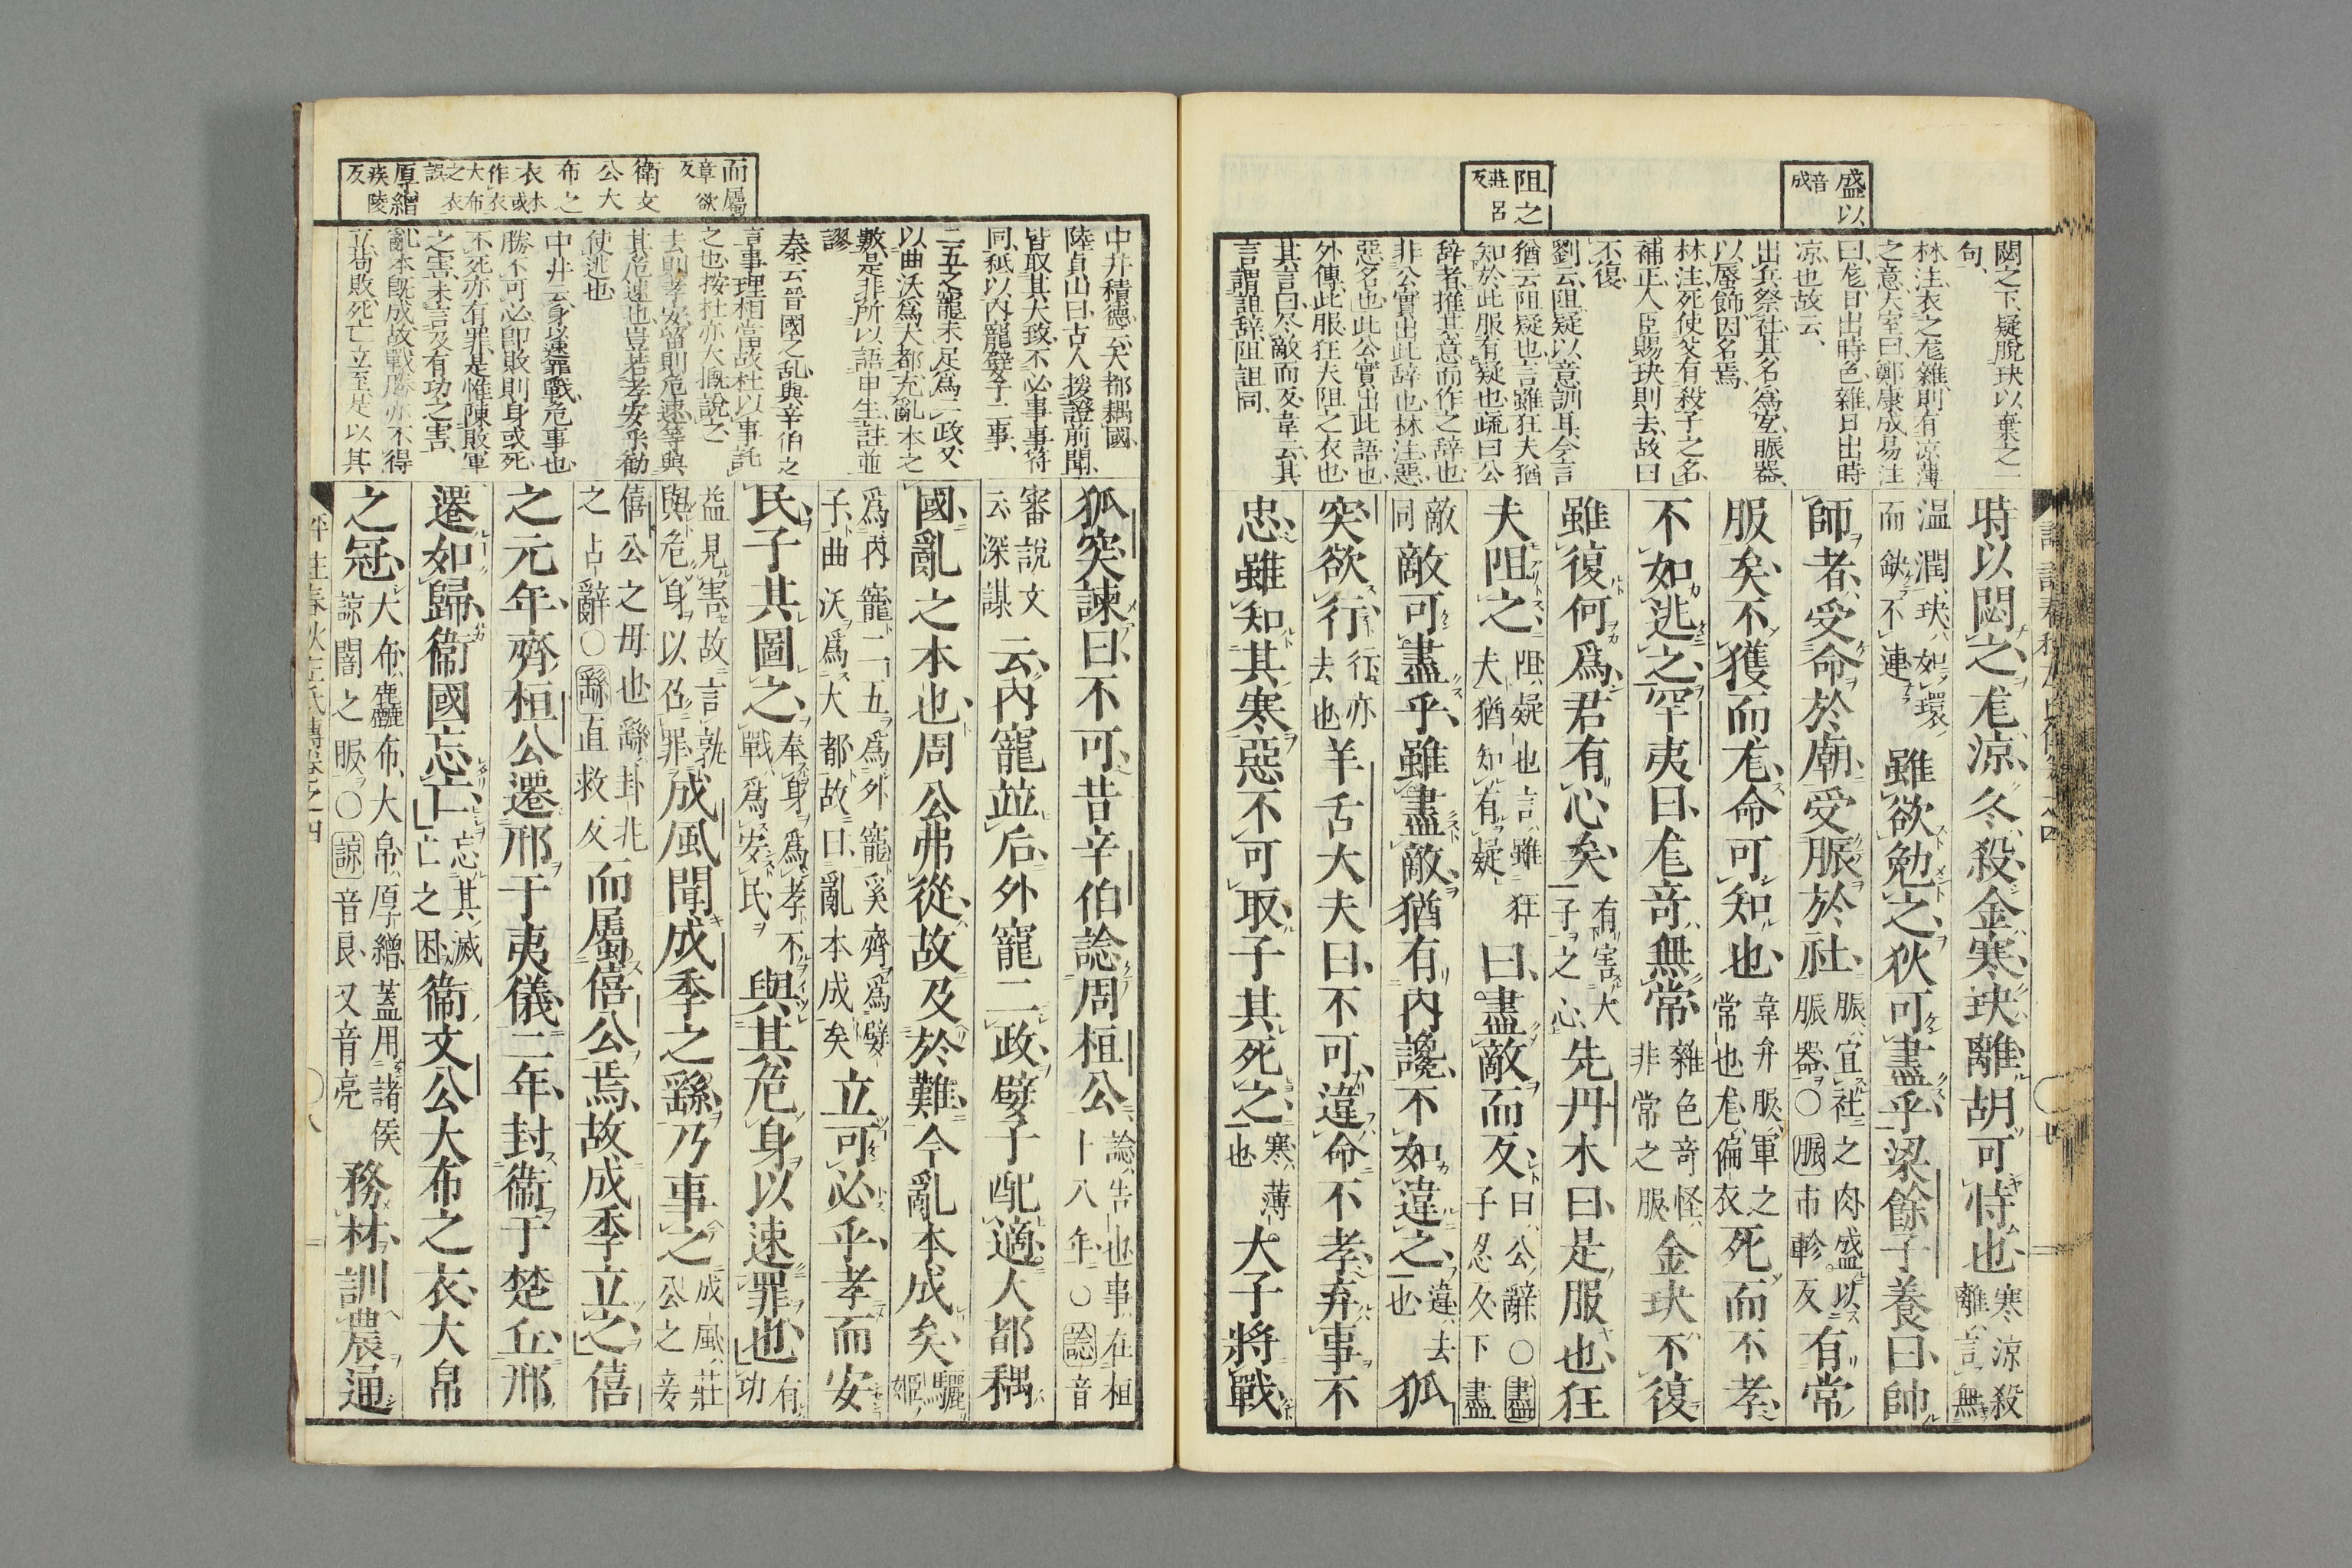 盛以
音成
阻之
莊呂反
閟之下、疑脫玦以棄之一
句、
林注、衣之尨雜、則有凉薄
之意、大室曰、鄭康成易注
曰、尨、日出時色雜、日出時
凉也、故云、
出兵祭社、其名爲宜、脤器
以蜃飾、因名焉、
林注、死使父有殺子之名、
補正、人臣賜玦則去、故曰
不復、
劉云、阻疑以意訓耳、今言
猶云阻疑也、言雖狂夫猶
知於此服有疑也、疏曰、公
辞者、推其意而作之辞也、
非公實出此辞也、林注、惡、
惡名也、此公實出此語也、
外傳、此服狂夫阻之衣也、
其言曰、尽敵而反、韋云、其
言謂詛辞、阻詛同、
時以閟之尨凉冬殺金寒玦離胡可恃也寒凉殺離言無
温潤玦如環而缺不連雖欲勉之狄可盡乎梁餘子養曰帥
師者受命於廟受脤於社脤宜社之肉盛以脤器○脤市軫反有常
服矣不獲而尨命可知也韋弁服軍之常也尨偏衣死而不孝
不如逃之罕夷曰尨奇無常雜色奇怪非常之服金玦不復
雖復何爲君有心矣有害大子之心先丹木曰是服也狂
夫阻之阻疑也言雖狂夫猶知有疑曰盡敵而反曰公辭○盡子忍反下盡
敵同敵可盡乎雖盡敵猶有内讒不如違之違去也狐
突欲行行亦去也羊舌大夫曰不可違命不孝弃事不
忠雖知其寒惡不可取子其死之寒薄也大子將戰
而屬
章欲反
衛文
公大
布之
衣
衣或本作大布之衣誤
厚繒
疾陵反
中井積德云、大都耦國、
陸貞山曰、古人援證前聞、
皆取其大致、不必事事符
同、秪以内寵嬖子二事、
二五之寵、未足爲二政、又
以曲沃爲大都、尤亂本之
數、是非所以語申生、註並
謬、
秦云、晉國之乱、與辛伯之
言事理相當、故杜以事託
之也、按杜亦大槪說之、
去則孝安、留則危速、等與
其危速也、豈若孝安乎、勸
使逃也
中井云、身速罪、戰危事也、
勝不可必、卽敗則身或死、
不死亦有罪、是惟陳敗軍
之害、未言及有功之害、
亂本旣成、故戰勝亦不得
立、苟敗、死亡立至、是以其
狐突諫曰不可昔辛伯諗周桓公諗告也事在桓十八年○諗音
審說文云深謀云内寵並后外寵二政嬖子配適大都耦
國亂之本也周公弗從故及於難今亂本成矣驪姬
爲内寵二五爲外寵奚齊爲嬖子曲沃爲大都故曰亂本成矣立可必乎孝而安
民子其圖之奉身爲孝不戰爲安民與其危身以速罪也有功
益見害故言孰與危身以召罪成風聞成季之繇乃事之成風莊公之妾
僖公之母也繇卦兆之占辭○繇直救反而屬僖公焉故成季立之僖
之元年齊桓公遷邢于夷儀二年封衞于楚丘邢
遷如歸衞國忘亡忘其滅亡之困衞文公大布之衣大帛
之冠大布麤布大帛厚繒蓋用諸侯諒闇之服○諒音良又音亮務材訓農通
評註春秋左氏傳卷之四